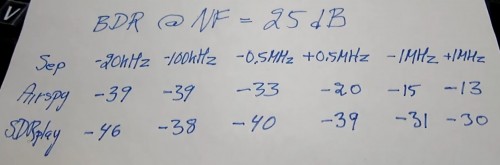 BDR @ NF = 25 dB
Sep -20kHz -100kHz -0.5MHz +0.5MHz -1MHz +1MHz
Airspy -39 -39 -33 -20 -15 -13
SDRplay -46 -38 -40 -39 -31 -30